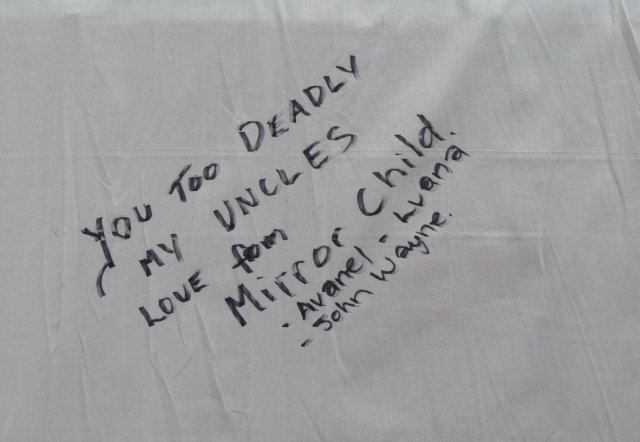 YOU TOO DEADLY
MY UNCLES
LOVE fom
Mirror Child.
- Avanel - Luana
- John Wayne.